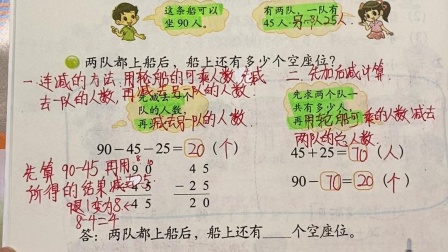 这条船可以
坐90人。
有两队，一队有
45人，另一队25人。
两队都上船后，船上还有多少个空座位？
一连减的方法，用轮船的可乘人数先减
去一队的人数，再减去另一队的人数。
队的人数，
再减去另一队的人数
二、先加后减计算
先求两个队一
共有多少人，
再用轮船可乘的人数减去
两队的总人数
90－45－25＝20（个）
45＋25＝70（人）
90－70＝20（个）
先算90-45 再用
所得的结果减去25
9借1变为8
8-4=4
8
9 0
－ 4 5
4 5
4 5
－ 2 5
2 0
答：两队都上船后，船上还有 个空座位。